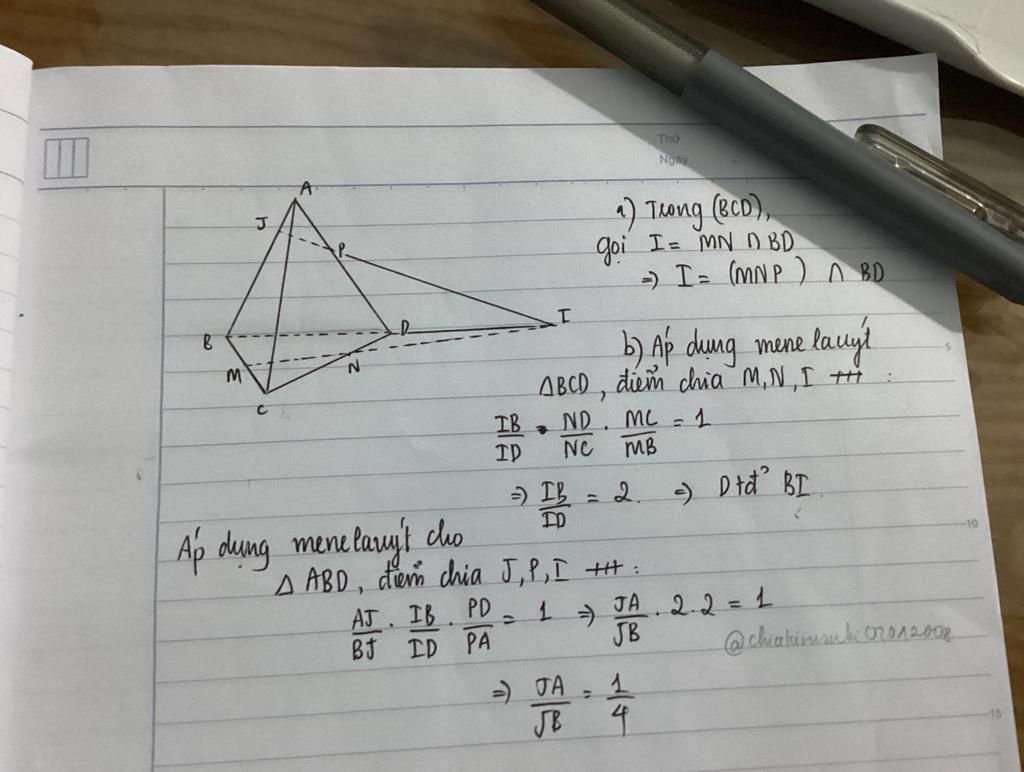 Thứ
Ngày
A
J
P
B
D
I
M
N
C
a) Trong (BCD),
gọi I = MN ∩ BD
⇒ I = (MNP) ∩ BD
b) Áp dụng menelauýt
ΔBCD, điểm chia M, N, I +++ :
IB/ID . ND/NC . MC/MB = 1
⇒ IB/ID = 2. ⇒ D tđ² BI
Áp dụng menelauýt cho
Δ ABD, điểm chia J, P, I +++ :
AJ/BJ . IB/ID . PD/PA = 1 ⇒ JA/JB . 2.2 = 1
⇒ JA/JB = 1/4
5
10
15